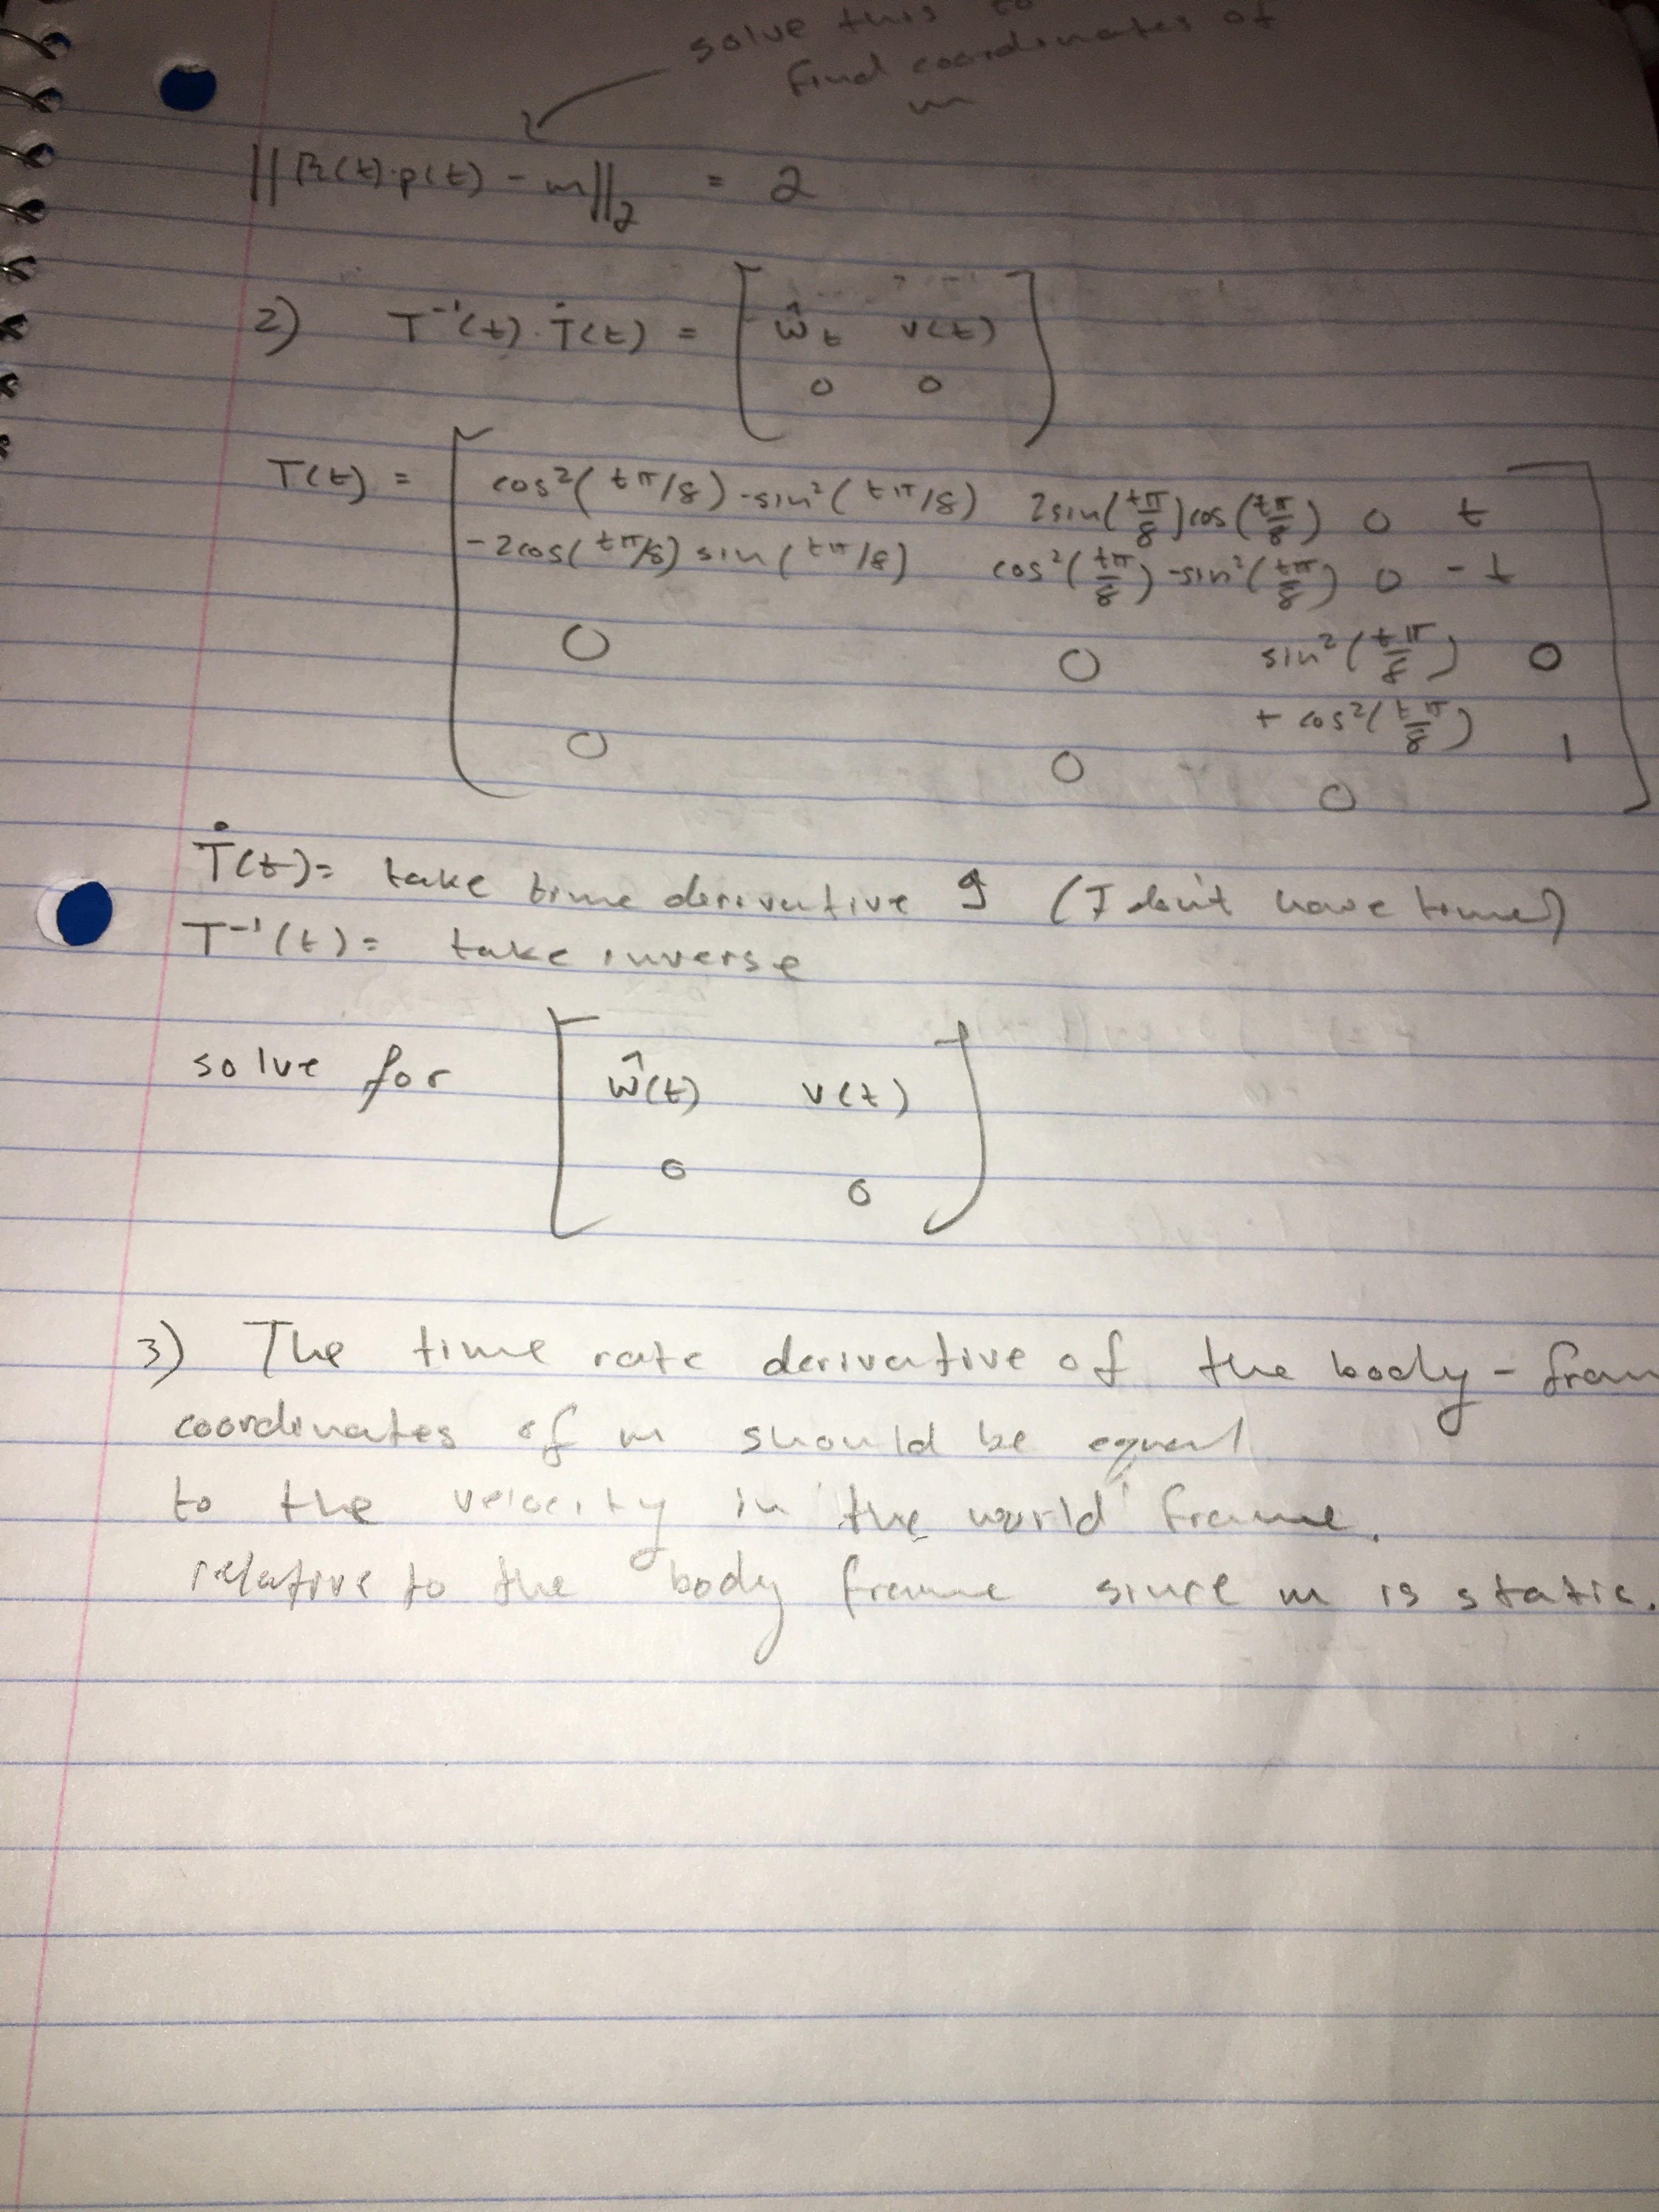 solve this to
find coordinates of
m
||R(t)·p(t) - m||₂ = 2
2) T⁻¹(t)·Ṫ(t) = [ ŵt v(t)
0 0 ]
T(t) = [ cos²(tπ/8)-sin²(tπ/8) 2sin(tπ/8)cos(tπ/8) 0 t
-2cos(tπ/8)sin(tπ/8) cos²(tπ/8)-sin²(tπ/8) 0 -t
0 0 sin²(tπ/8) 0
+ cos²(tπ/8)
0 0 0 1 ]
Ṫ(t)= take time derivative (I don't have time)
T⁻¹(t)= take inverse
solve for [ ŵ(t) v(t)
0 0 ]
3) The time rate derivative of the body-fram
coordinates of m should be equal
to the velocity in the world frame.
relative to the body frame since m is static.